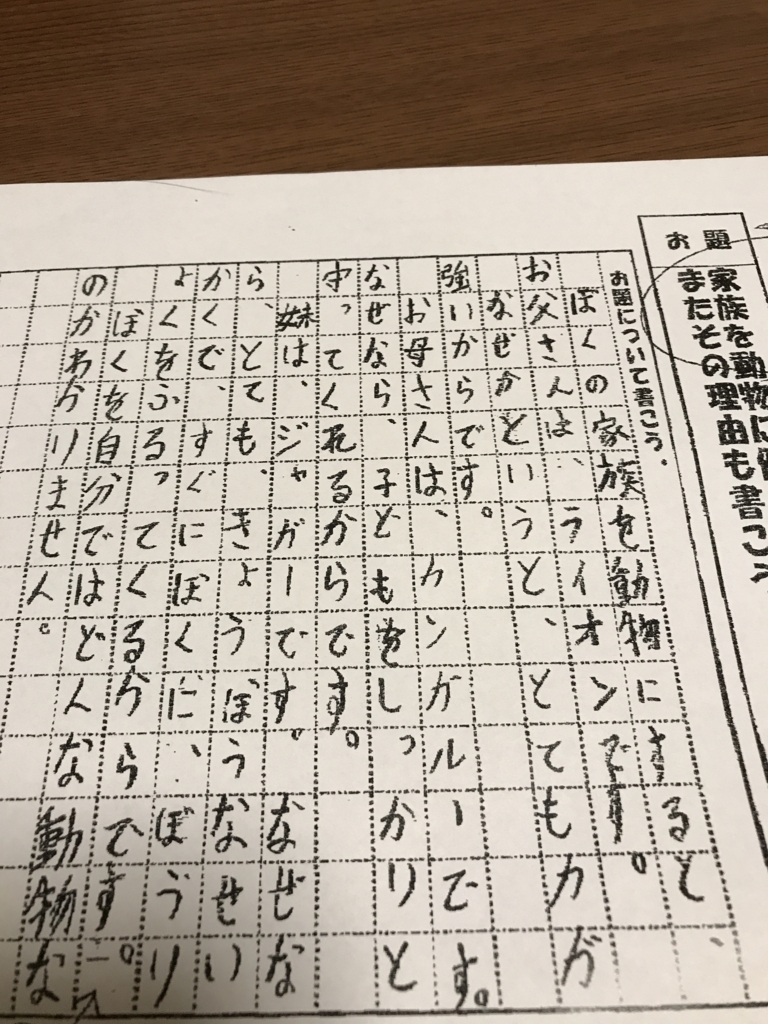 お題
家族を動物に
またその理由も書こう
お題について書こう。
ぼくの家族を動物にすると、
お父さんは、ライオンです。
なぜかというと、とても力が
強いからです。
お母さんは、カンガルーです。
なぜなら、子どもをしっかりと
守ってくれるからです。
妹は、ジャガーです。なぜな
ら、とても、きょうぼうなせい
かくで、すぐにぼくに、ぼうり
ょくをふるってくるからです。
ぼくを自分ではどんな動物な
のかわかりません。